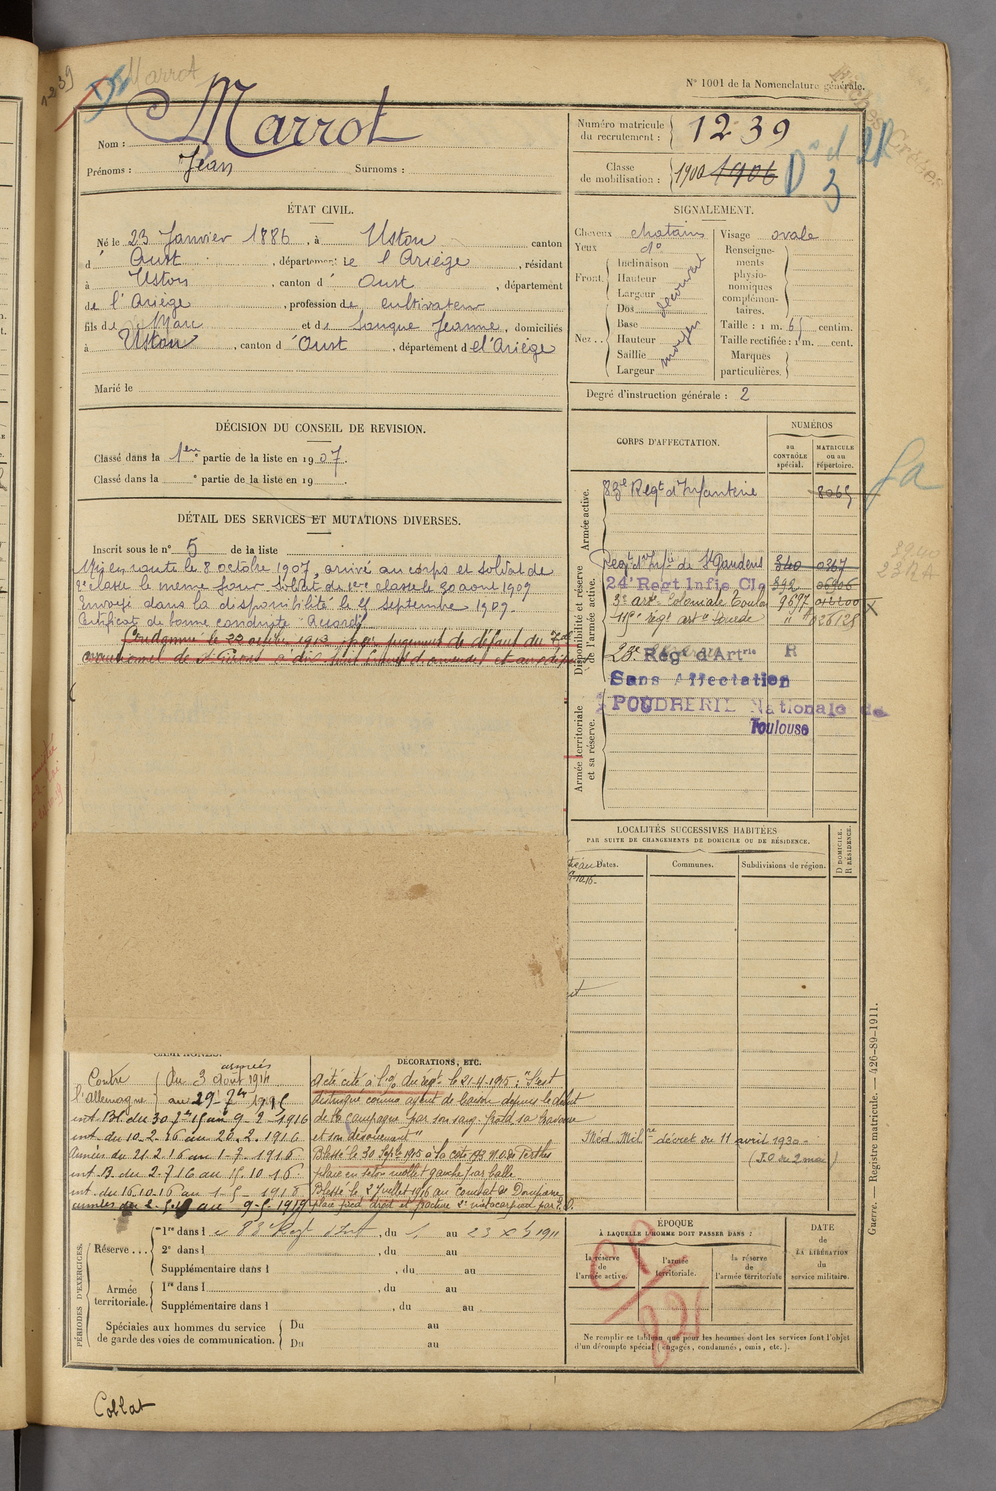 Marrot
1239
N° 1001 de la Nomenclature générale.
Nom : Marrot
Prénoms : Jean Surnoms :
Numéro matricule du recrutement : 1239
Classe de mobilisation : 1900 1906
ÉTAT CIVIL.
Né le 23 Janvier 1886, à Ustou canton
d'Oust, département de l'Ariège, résidant
à Ustou, canton d'Oust, département
de l'Ariège, profession de cultivateur
fils de Marc et de Souque Jeanne, domiciliés
à Ustou, canton d'Oust, département de l'Ariège
Marié le
SIGNALEMENT.
Cheveux chatains
Yeux d°
Front Inclinaison
Hauteur
Largeur
découvert
Nez Dos
Base
Hauteur
Saillie
Largeur
moyen
Visage ovale
Renseignements physionomiques complémentaires.
Taille : 1 m. 65 centim.
Taille rectifiée : 1 m. cent.
Marques particulières.
Degré d'instruction générale : 2
DÉCISION DU CONSEIL DE REVISION.
Classé dans la 1ère partie de la liste en 1907.
Classé dans la ° partie de la liste en 19
DÉTAIL DES SERVICES ET MUTATIONS DIVERSES.
Inscrit sous le n° 5 de la liste
Mis en route le 8 octobre 1907, arrivé au corps et soldat de
2e classe le même jour. Soldat de 1ère classe le 30 août 1909
Envoyé dans la disponibilité le 25 septembre 1909.
Certificat de bonne conduite "Accordé"
Condamné le 22 octobre 1913 par jugement de défaut du Trib
correctionnel de St Girons à dix huit francs d'amende et aux dépens
CORPS D'AFFECTATION.
NUMÉROS
au CONTRÔLE spécial.
MATRICULE ou au répertoire.
Armée active.
83e Régt d'Infanterie 8065
Disponibilité et réserve de l'armée active.
Régt d'Infie de St Gaudens 340 0367
24e Regt Infie Cle 392 06906
3e art. Coloniale Toulon 9677
116e régt arte lourde " 026128
23e Rég. d'Artrie R
Sans Affectation
Armée territoriale et sa réserve.
POUDRERIE Nationale de
Toulouse
LOCALITÉS SUCCESSIVES HABITÉES
PAR SUITE DE CHANGEMENTS DE DOMICILE OU DE RÉSIDENCE.
Dates.
Communes.
Subdivisions de région.
D DOMICILE.
R RÉSIDENCE.
CAMPAGNES.
Contre l'Allemagne
Du 3 août 1914
au 29-7bre 1915
int. Bl. du 30 7bre 15 au 9-2-1916
int. du 10.2.16 au 20.2.1916
armées du 21.2.16 au 1-7-1916
int. B. du 2-7-16 au 15.10.16
int. du 16.10.16 au 1-5-1918
armées du 2-5-18 au 9-5-1919
DÉCORATIONS, ETC.
A été cité à l'o/ du régt le 21-4-1915 : "S'est
distingué comme agent de liaison depuis le début
de la campagne par son sang-froid, sa bravoure
et son dévouement"
Blessé le 30 Septbre 1915 à la cote 193 N.O. de Tahure
plaie en séton mollet gauche par balle
Blessé le 2 Juillet 1916 au combat de Dompierre
plaie pied droit et fracture 2e métacarpien par E.O.
Méd. Milre décret du 11 avril 1930
(J.O. du 2 mai)
PÉRIODES D'EXERCICES.
Réserve
1re dans le 83e Régt Inf, du au 23 1911
2e dans l , du au
Supplémentaire dans l , du au
Armée territoriale.
1re dans l , du au
Supplémentaire dans l , du au
Spéciales aux hommes du service de garde des voies de communication.
Du au
Du au
ÉPOQUE
À LAQUELLE L'HOMME DOIT PASSER DANS :
la réserve de l'armée active.
l'armée territoriale.
la réserve de l'armée territoriale
DATE DE LA LIBÉRATION du service militaire.
CP
821
Ne remplir ce tableau que pour les hommes dont les services font l'objet
d'un décompte spécial (engagés, condamnés, omis, etc.).
Guerre. — Registre matricule. — 426-89-1911.
Collat